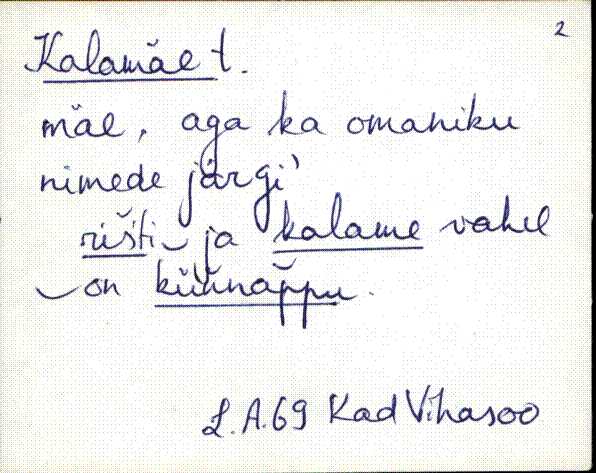 2
Kalamäe t.
mäe, aga ka omaniku
nimede järgi'
rišti ja kalame vahel
on küünäppu.
L.A.69 Kad Vihasoo